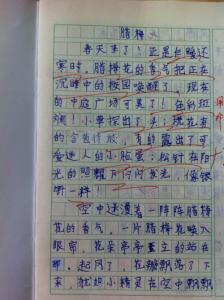 腊梅
春天来了！正是乍暖还
寒时，腊梅花的香气把正在
沉睡中的校园唤醒了。现在
的中庭广场可美了！色彩斑
斓！小草探出了头；桃花有
的含苞待放，有的露出了可
爱迷人的小脸蛋；松针在阳光
的照耀下闪闪发光，像银
针一样！
空中迷漫着一阵阵腊梅
花的香气，一片腊梅花映入
眼帘，花朵亭亭直立的站在
那。起风了，花瓣飘落了下
来，犹如小精灵在空中飘飘